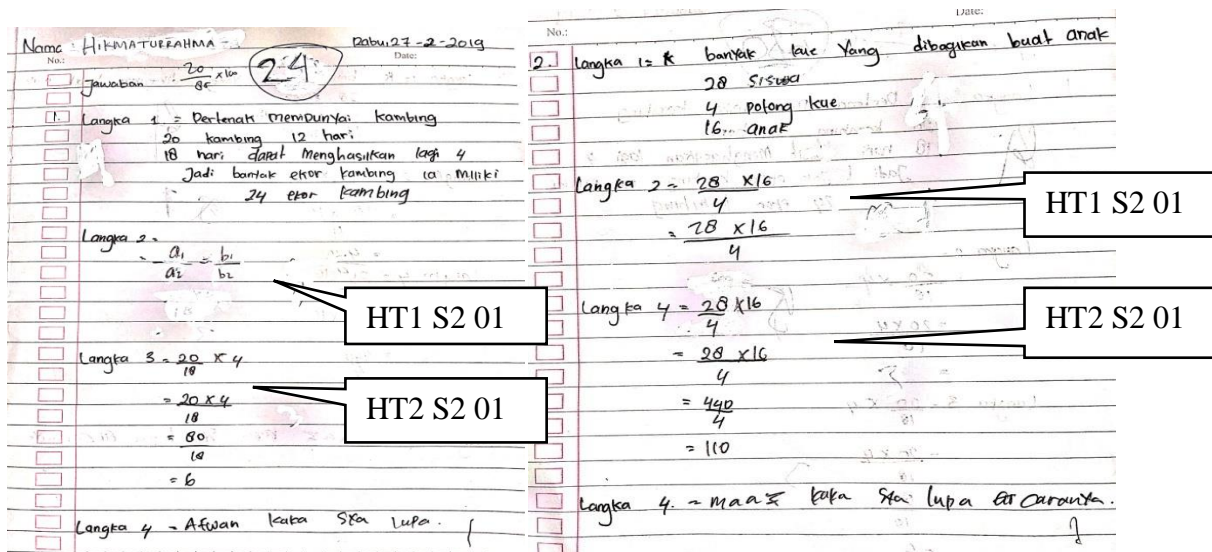 Nama : HIKMATURRAHMA
Rabu, 27-2-2019
No.:
Date:
Jawaban 20/85 x 100
24
1. Langka 1 = Perternak mempunyai kambing
20 kambing 12 hari
18 hari dapat menghasilkan lagi 4
Jadi banyak ekor kambing ia miliki
24 ekor kambing
Langka 2 =
= a1/a2 = b1/b2
HT1 S2 01
Langka 3 = 20/18 x 4
= 20 x 4/18
HT2 S2 01
= 80/18
= 6
Langka 4 = Afwan kaka sya lupa.
No.:
Date:
2. Langka 1 = banyak kue yang dibagikan buat anak
28 siswa
4 potong kue
16 anak
Langka 2 = 28 x 16/4
HT1 S2 01
= 28 x 16/4
Langka 4 = 28 x 16/4
HT2 S2 01
= 28 x 16/4
= 440/4
= 110
Langka 4. = maaf kaka sya lupa caranya.